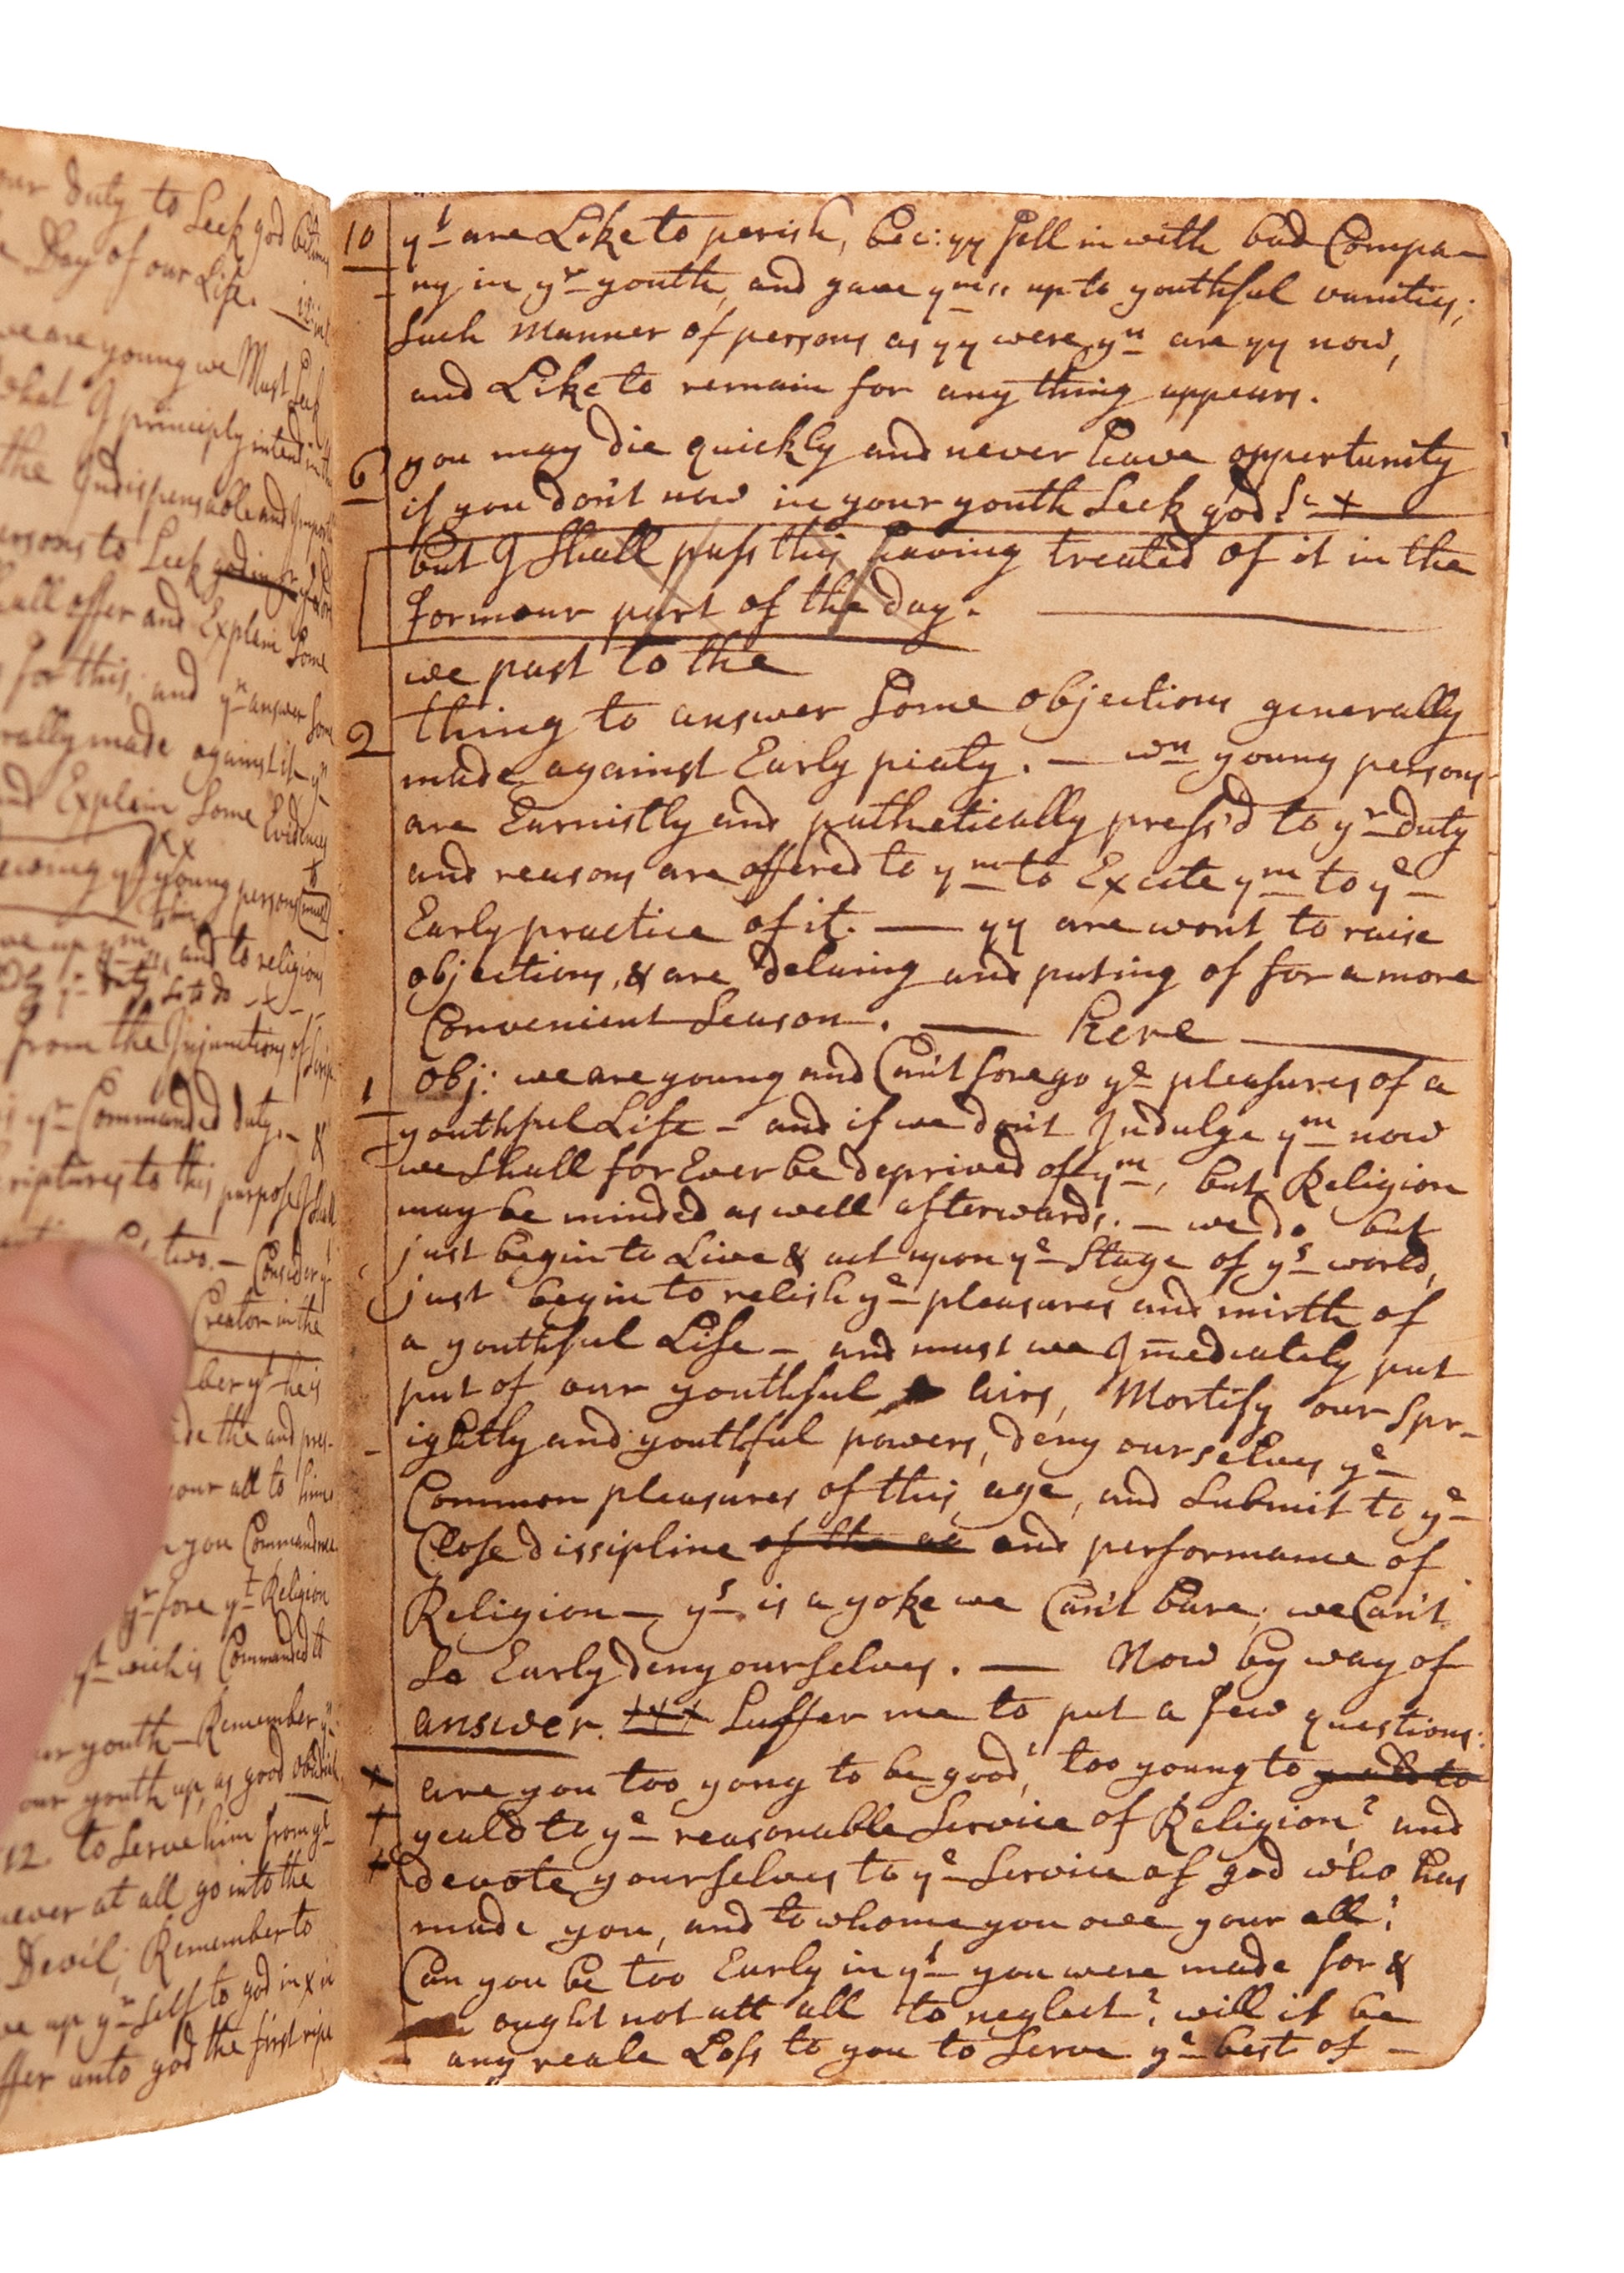 our Duty to Seek god betimes
Day of our Life.
we are young we Must Seek
what I principly intend in th
the Indispensable and
ersons to Seek
hall offer and Explain Some
for this; and yn answer Som
rally made against it yn
and Explain Some Evidences
ewing yt young persons must
ve up ymss and to religion
yr duty so to do
from the Injunctions of Scrip
yr Commanded duty, &
criptures to this purpose I shall
two. — Consider yr
Creator in the
ber yt he is
de the and pres-
your all to him
you Commandmen
yrfore yt Religion
yt wich is Commanded it
ur youth — Remember yn
our youth up, as good obadiah
12. to Serve him from yt
never at all go into the
Devil; Remember to
ve up yr self to god in x in
ffer unto god the first ripe
10 yt are Like to perish, bec: yy fell in with bad Compa-
- ny in yr youth, and gave ymss up to youthful vanities;
Such Manner of persons as yy were yn are yy now,
and Like to remain for any thing appears.
6 you may die quickly and never have oppertunity
if you don't now in your youth Seek god &c x
but I Shall pass this having treated of it in the
formour part of the day.
we past to the
2 thing to answer Some objections generally
made against Early piaty. — wn young persons
are Earnistly and pathetically press'd to yr duty
and reasons are offered to ym to Excite ym to ye
Early practice of it. — yy are wont to raise
objections, & are delaring and puting of for a more
Convenient Season. — here —
1 obj: we are young and Can't forego ye pleasures of a
- youthful Life - and if we don't Indulge ym now
we Shall for Ever be deprived of ym, but Religion
may be minded as well afterwards. — we do but
just begin to Live & act upon ye Stage of ys world,
just begin to relish ye pleasures and mirth of
a youthful Life - and must we Imediately put
put of our youthful airs, Mortify our Spr-
- ightly and youthful powers, deny ourselves ye
Common pleasures of this age, and Submit to ye
Close dissipline of the ag and performance of
Religion — ys is a yoke we Can't bare, we Can't
So Early deny ourselves. — Now by way of
answer. Suffer me to put a few questions:
x are you too yong to be good, too young to yeald to
+ yeald to ye reasonable Service of Religion? and
+ devote yourselves to ye Service of god who has
made you, and to whome you owe your all?
Can you be too Early in yt you were made for &
ought not att all to neglect? will it be
any reale Loss to you to Serve ye best of -